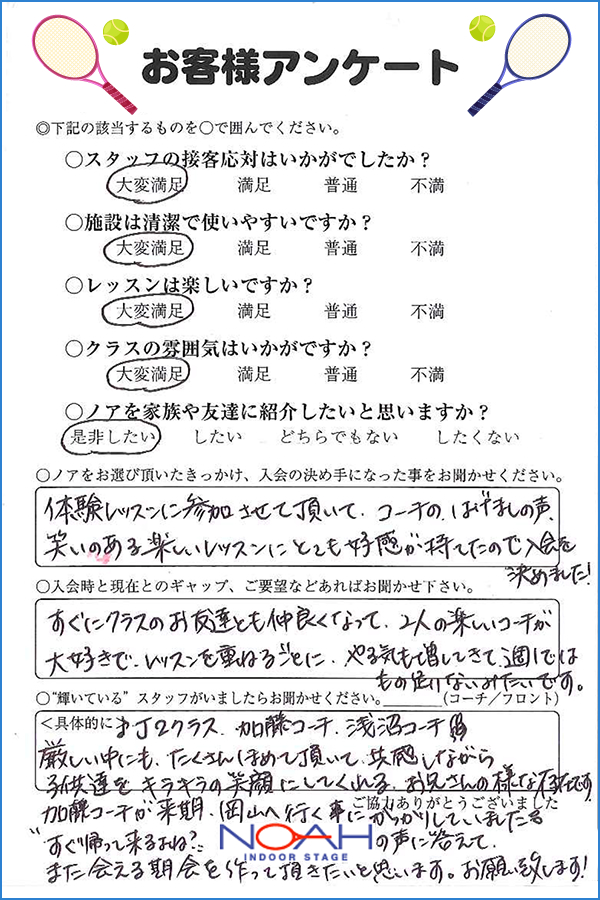 お客様アンケート
◎下記の該当するものを○で囲んでください。
○スタッフの接客応対はいかがでしたか？
大変満足 満足 普通 不満
○施設は清潔で使いやすいですか？
大変満足 満足 普通 不満
○レッスンは楽しいですか？
大変満足 満足 普通 不満
○クラスの雰囲気はいかがですか？
大変満足 満足 普通 不満
○ノアを家族や友達に紹介したいと思いますか？
是非したい したい どちらでもない したくない
○ノアをお選び頂いたきっかけ、入会の決め手になった事をお聞かせください。
体験レッスンに参加させて頂いて、コーチの、はげましの声、
笑いのある楽しいレッスンにとても好感が持てたので入会を
決めました!
○入会時と現在とのギャップ、ご要望などあればお聞かせ下さい。
すぐにクラスのお友達とも仲良くなって、2人の楽しいコーチが
大好きで、レッスンを重ねるごとに、やる気も増してきて、週1では
もの足りないみたいです。
○"輝いている" スタッフがいましたらお聞かせください。 (コーチ／フロント)
＜具体的に J2クラス、加藤コーチ、浅沼コーチ
厳しい中にも、たくさんほめて頂いて、共感しながら
子供達をキラキラの笑顔にしてくれる、お兄さんの様な存在です
ご協力ありがとうございました
加藤コーチが来期、岡山へ行く事にがっかりしていました
"すぐ帰って来るよね?" の声に答えて、
NOAH
INDOOR STAGE
また会える期会を作って頂きたいと思います。お願い致します!